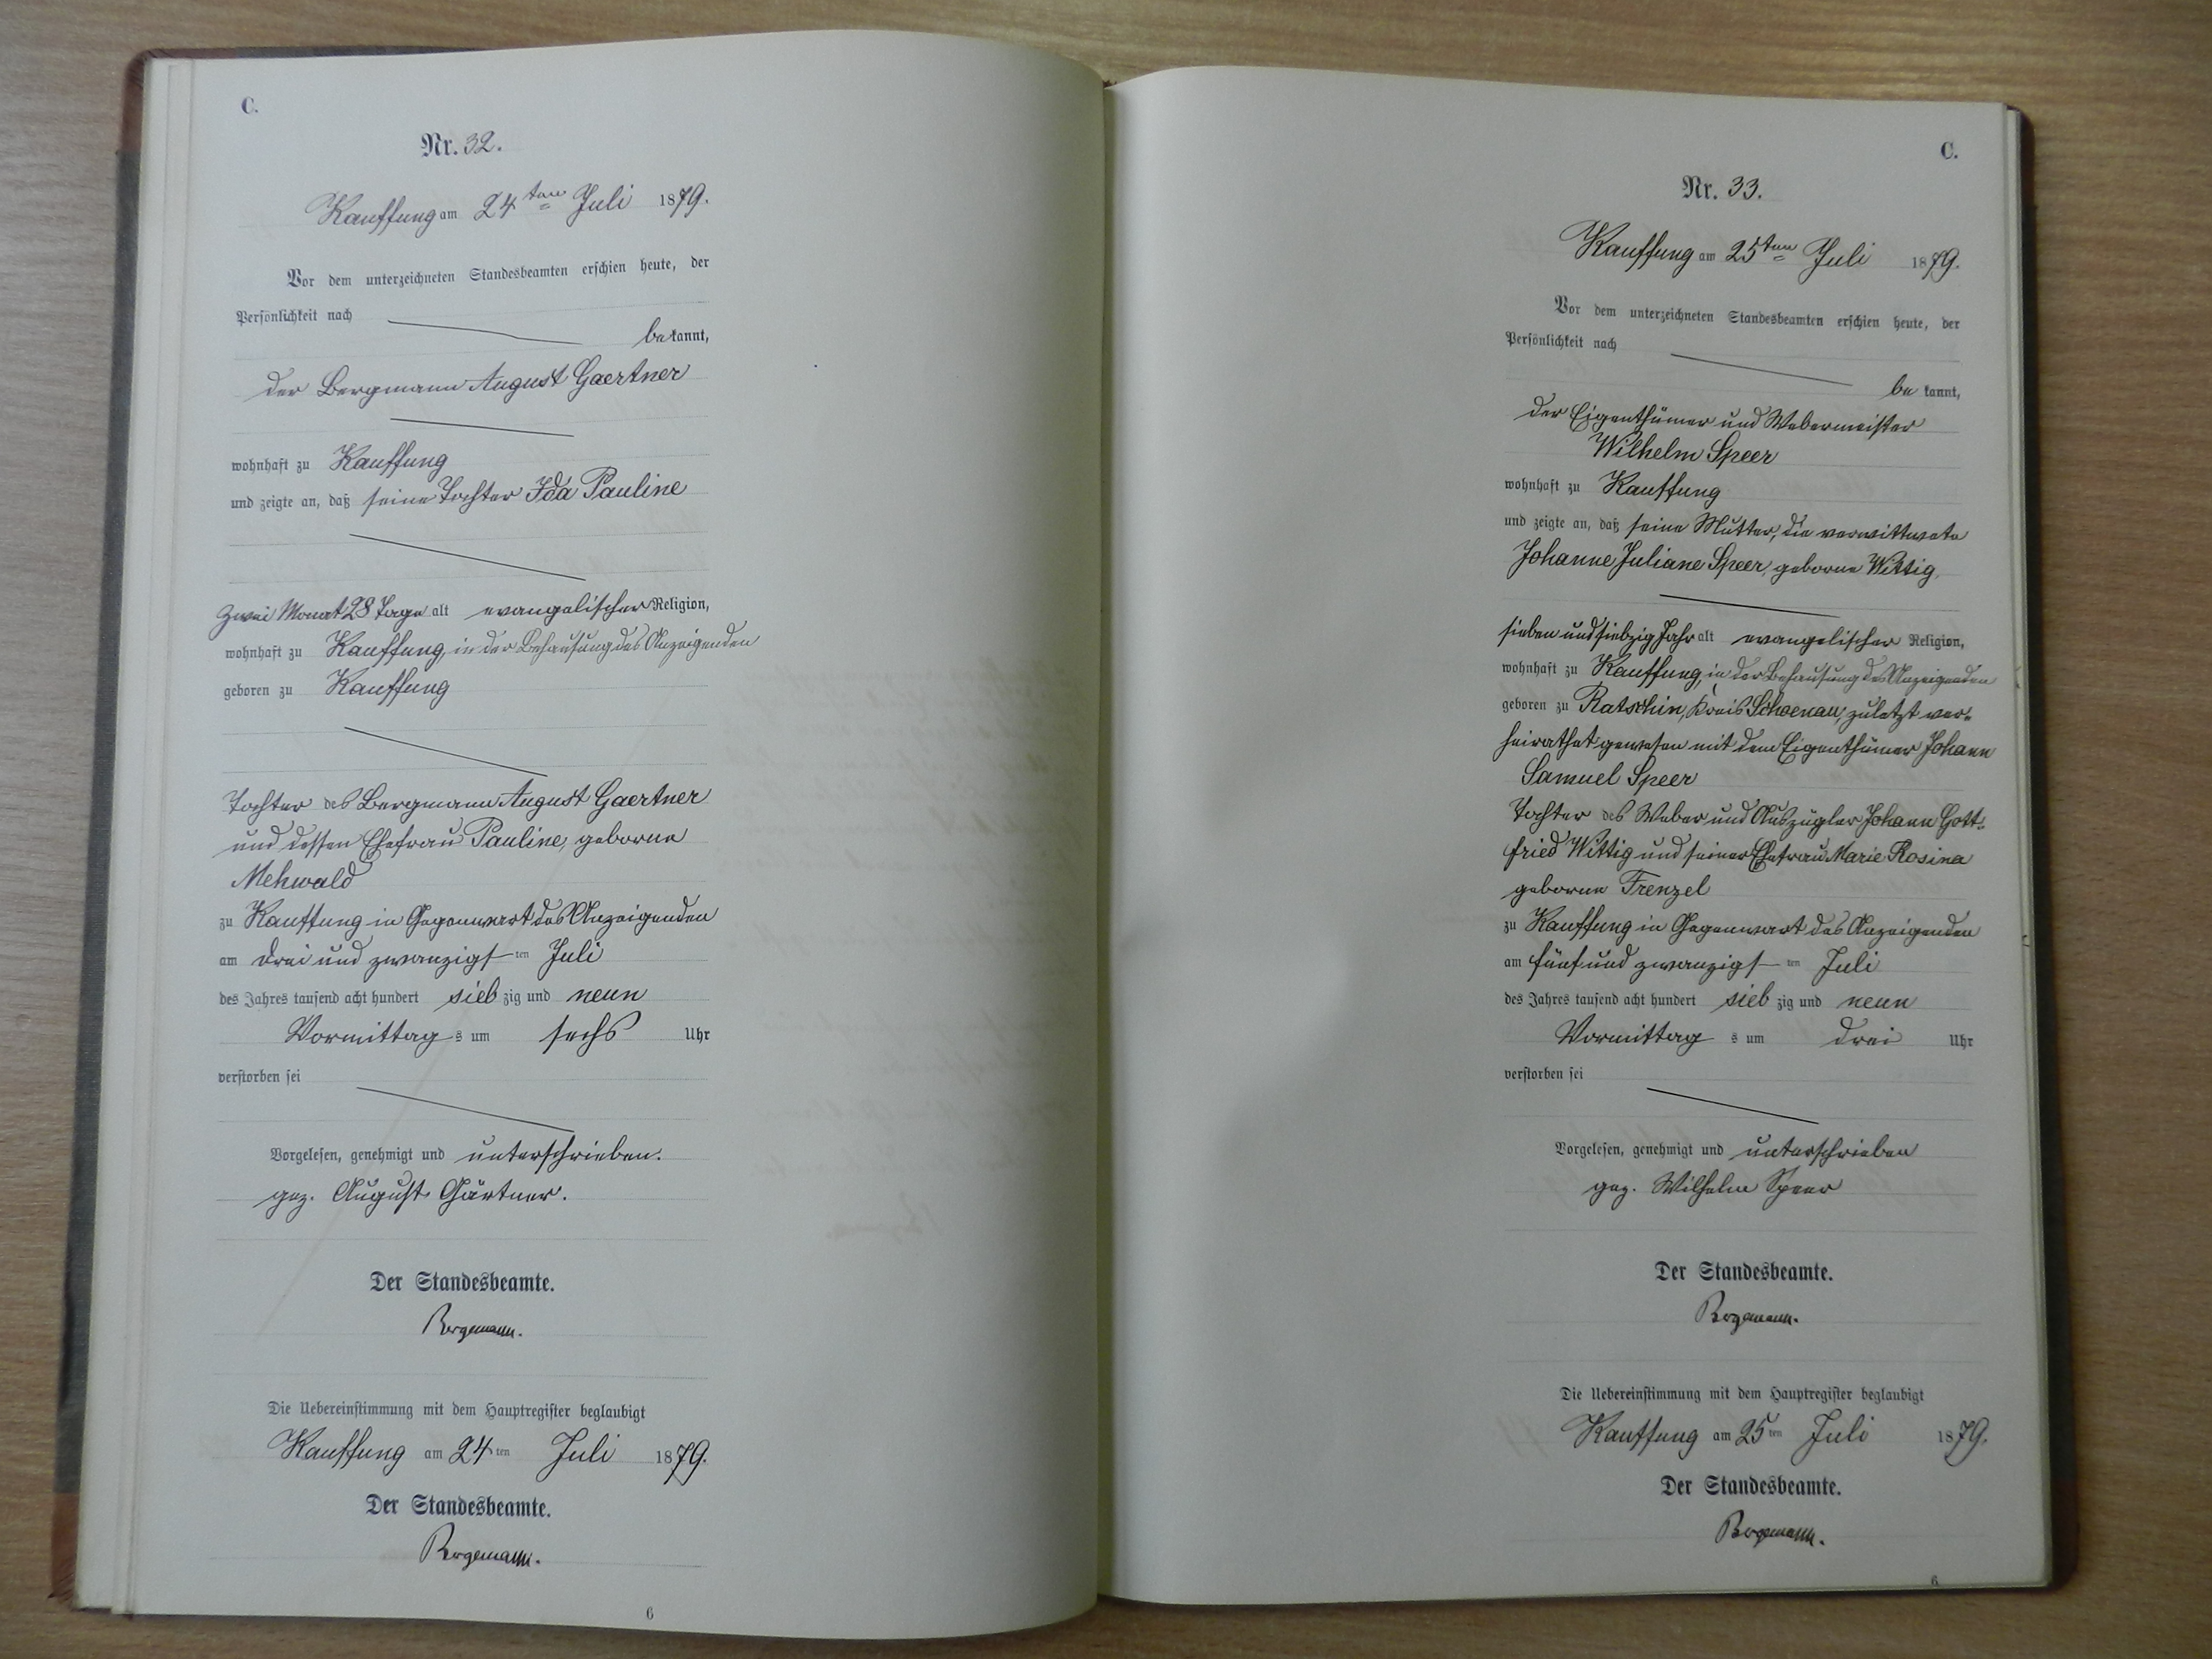 C.
Nr. 32.
Kauffung am 24ten Juli 1879.
Vor dem unterzeichneten Standesbeamten erschien heute, der
Persönlichkeit nach
bekannt,
der Bergmann August Gaertner
wohnhaft zu Kauffung
und zeigte an, daß seine Tochter Ida Pauline
zwei Monat 28 Tage alt evangelischer Religion,
wohnhaft zu Kauffung, in der Behausung des Anzeigenden
geboren zu Kauffung
Tochter des Bergmann August Gaertner
und dessen Ehefrau Pauline, geborne
Mehwald
zu Kauffung in Gegenwart des Anzeigenden
am drei und zwanzigsten Juli
des Jahres tausend acht hundert siebzig und neun
Vormittags um sechs Uhr
verstorben sei
Vorgelesen, genehmigt und unterschrieben.
gez. August Gärtner.
Der Standesbeamte.
Bergemann.
Die Uebereinstimmung mit dem Hauptregister beglaubigt
Kauffung am 24ten Juli 1879.
Der Standesbeamte.
Bergemann.
6
C.
Nr. 33.
Kauffung am 25ten Juli 1879.
Vor dem unterzeichneten Standesbeamten erschien heute, der
Persönlichkeit nach
bekannt,
der Eigenthümer und Webermeister
Wilhelm Speer
wohnhaft zu Kauffung
und zeigte an, daß seine Mutter, die verwittwete
Johanne Juliane Speer, geborne Wittig,
sieben und siebzig Jahr alt evangelischer Religion,
wohnhaft zu Kauffung, in der Behausung des Anzeigenden
geboren zu Ratschin, Kreis Schoenau, zuletzt ver-
heirathet gewesen mit dem Eigenthümer Johann
Samuel Speer
Tochter des Weber und Auszügler Johann Gott-
fried Wittig und seiner Ehefrau Marie Rosina
geborne Frenzel
zu Kauffung in Gegenwart des Anzeigenden
am fünf und zwanzigsten Juli
des Jahres tausend acht hundert siebzig und neun
Vormittags um drei Uhr
verstorben sei
Vorgelesen, genehmigt und unterschrieben
gez. Wilhelm Speer
Der Standesbeamte.
Bergemann.
Die Uebereinstimmung mit dem Hauptregister beglaubigt
Kauffung am 25ten Juli 1879.
Der Standesbeamte.
Bergemann.
6